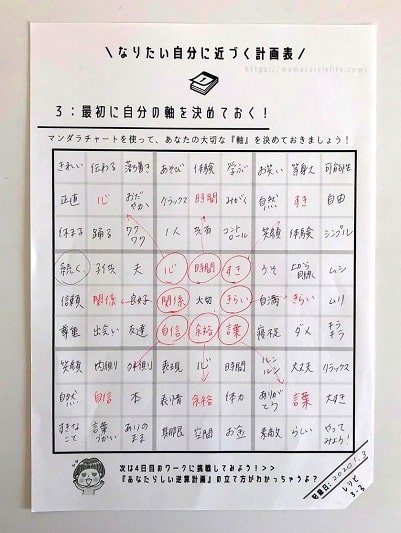 \ なりたい自分に近づく計画表 /
https://mamacarrielife.com/
3：最初に自分の軸を決めておく！
マンダラチャートを使って、あなたの大切な『軸』を決めておきましょう！
きれい 伝わる 落ち着き あそび 体験 学ぶ お笑い 等身大 可能性
正直 心 おだやか リラックス 時間 みがく 自然 すき 自由
休まる 踊る ワクワク 1人 共有 コントロール 笑顔 体験 シンプル
続く 子供 夫 心 時間 すき うそ 上から目線 ムシ
信頼 関係 関係 大切 きらい 自満 きらい ムリ
尊重 出会い 友達 自信 余裕 言葉 寝不足 ダメ キラキラ
笑顔 内側 外側 表現 心 時間 ルンルン 大丈夫 リラックス
自然 自信 本 余裕 体力 ありがとう 言葉 大好き
すきなこと 言葉づかい ありのまま 空間 お金 素敵 らしい やってみよう！
次は4日目のワークに挑戦してみよう！>>
『あなたらしい逆算計画』の立て方がわかっちゃうよ？
配信日：2020.1.3
レシピ
3-3